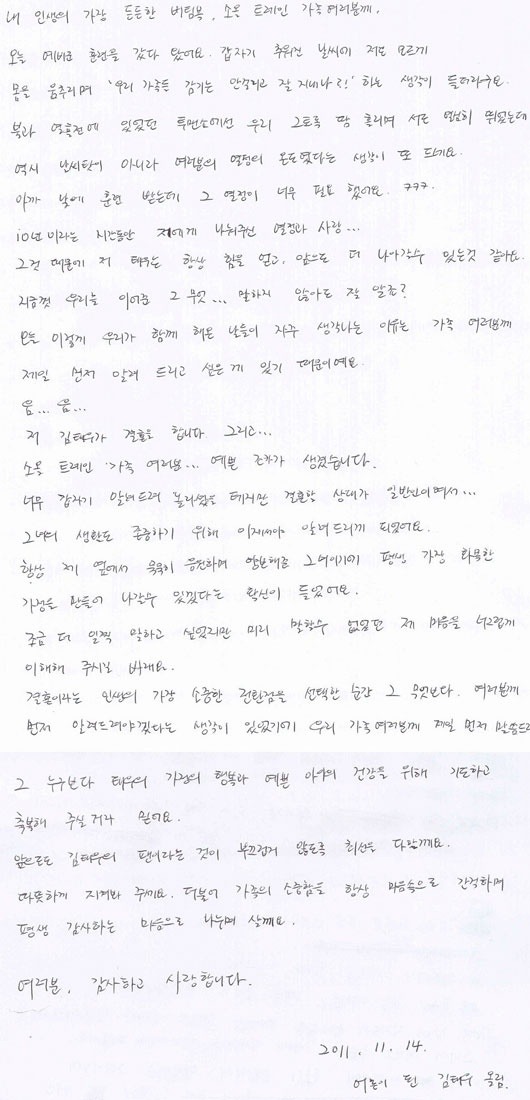 내 인생의 가장 든든한 버팀목, 소울 트레인 가족 여러분께.
오늘 예비군 훈련을 갔다 왔어요. 갑자기 추워진 날씨에 저도 모르게
몸을 움추리며 '우리 가족들 감기는 안걸리고 잘 지내나?!' 하는 생각이 들더라구요.
불과 얼음전에 있었던 투맨쇼에선 우리 그토록 땀 흘리며 서로 열심히 뛰었는데
역시 날씨탓이 아니라 여러분의 열정의 온도였다는 생각이 또 드네요.
아까 낮에 훈련 받는데 그 열정이 너무 필요 했어요. ㅋㅋㅋ.
10년이라는 시간동안 저에게 나눠주신 열정과 사랑...
그것 때문에 저 태우는 항상 힘을 얻고, 앞으로 더 나아갈수 있는것 같아요.
지금껏 우리를 이어준 그 무엇... 말하지 않아도 잘 알죠?
오늘 이렇게 우리가 함께 해온 날들이 자꾸 생각나는 이유는 가족 여러분께
제일 먼저 알려 드리고 싶은 게 있기 때문이예요.
음... 음...
저 김태우가 결혼을 합니다 그리고...
소울 트레인 가족 여러분... 예쁜 조카가 생겼습니다.
너무 갑자기 알려드려 놀라셨을 테지만 결혼할 상대가 일반인이여서...
그녀의 생활도 존중하기 위해 이제서야 알려드리게 되었어요.
항상 제 옆에서 묵묵히 응원하며 양보해준 그녀이기에 평생 가장 화목한
가정을 만들어 나갈수 있겠다는 확신이 들었어요.
조금 더 일찍 말하고 싶었지만 미리 말할수 없었던 제 마음을 너그럽게
이해해 주시길 바래요.
결혼이라는 인생의 가장 소중한 전환점을 선택한 순간 그 무엇보다. 여러분께
먼저 알려드려야겠다는 생각이 있었기에 우리 가족여러분께 제일 먼저 말씀드
그 누구보다 태우의 가정의 행복과 예쁜 아이의 건강을 위해 기도하고
축복해 주실거라 믿어요.
앞으로도 김태우의 팬이라는 것이 부끄럽지 않도록 최선을 다할께요.
따뜻하게 지켜봐 주세요. 더불어 가족의 소중함을 항상 마음속으로 간직하며
평생 감사하는 마음으로 나누며 살께요.
여러분, 감사하고 사랑합니다.
2011. 11. 14.
어른이 된 김태우 올림.